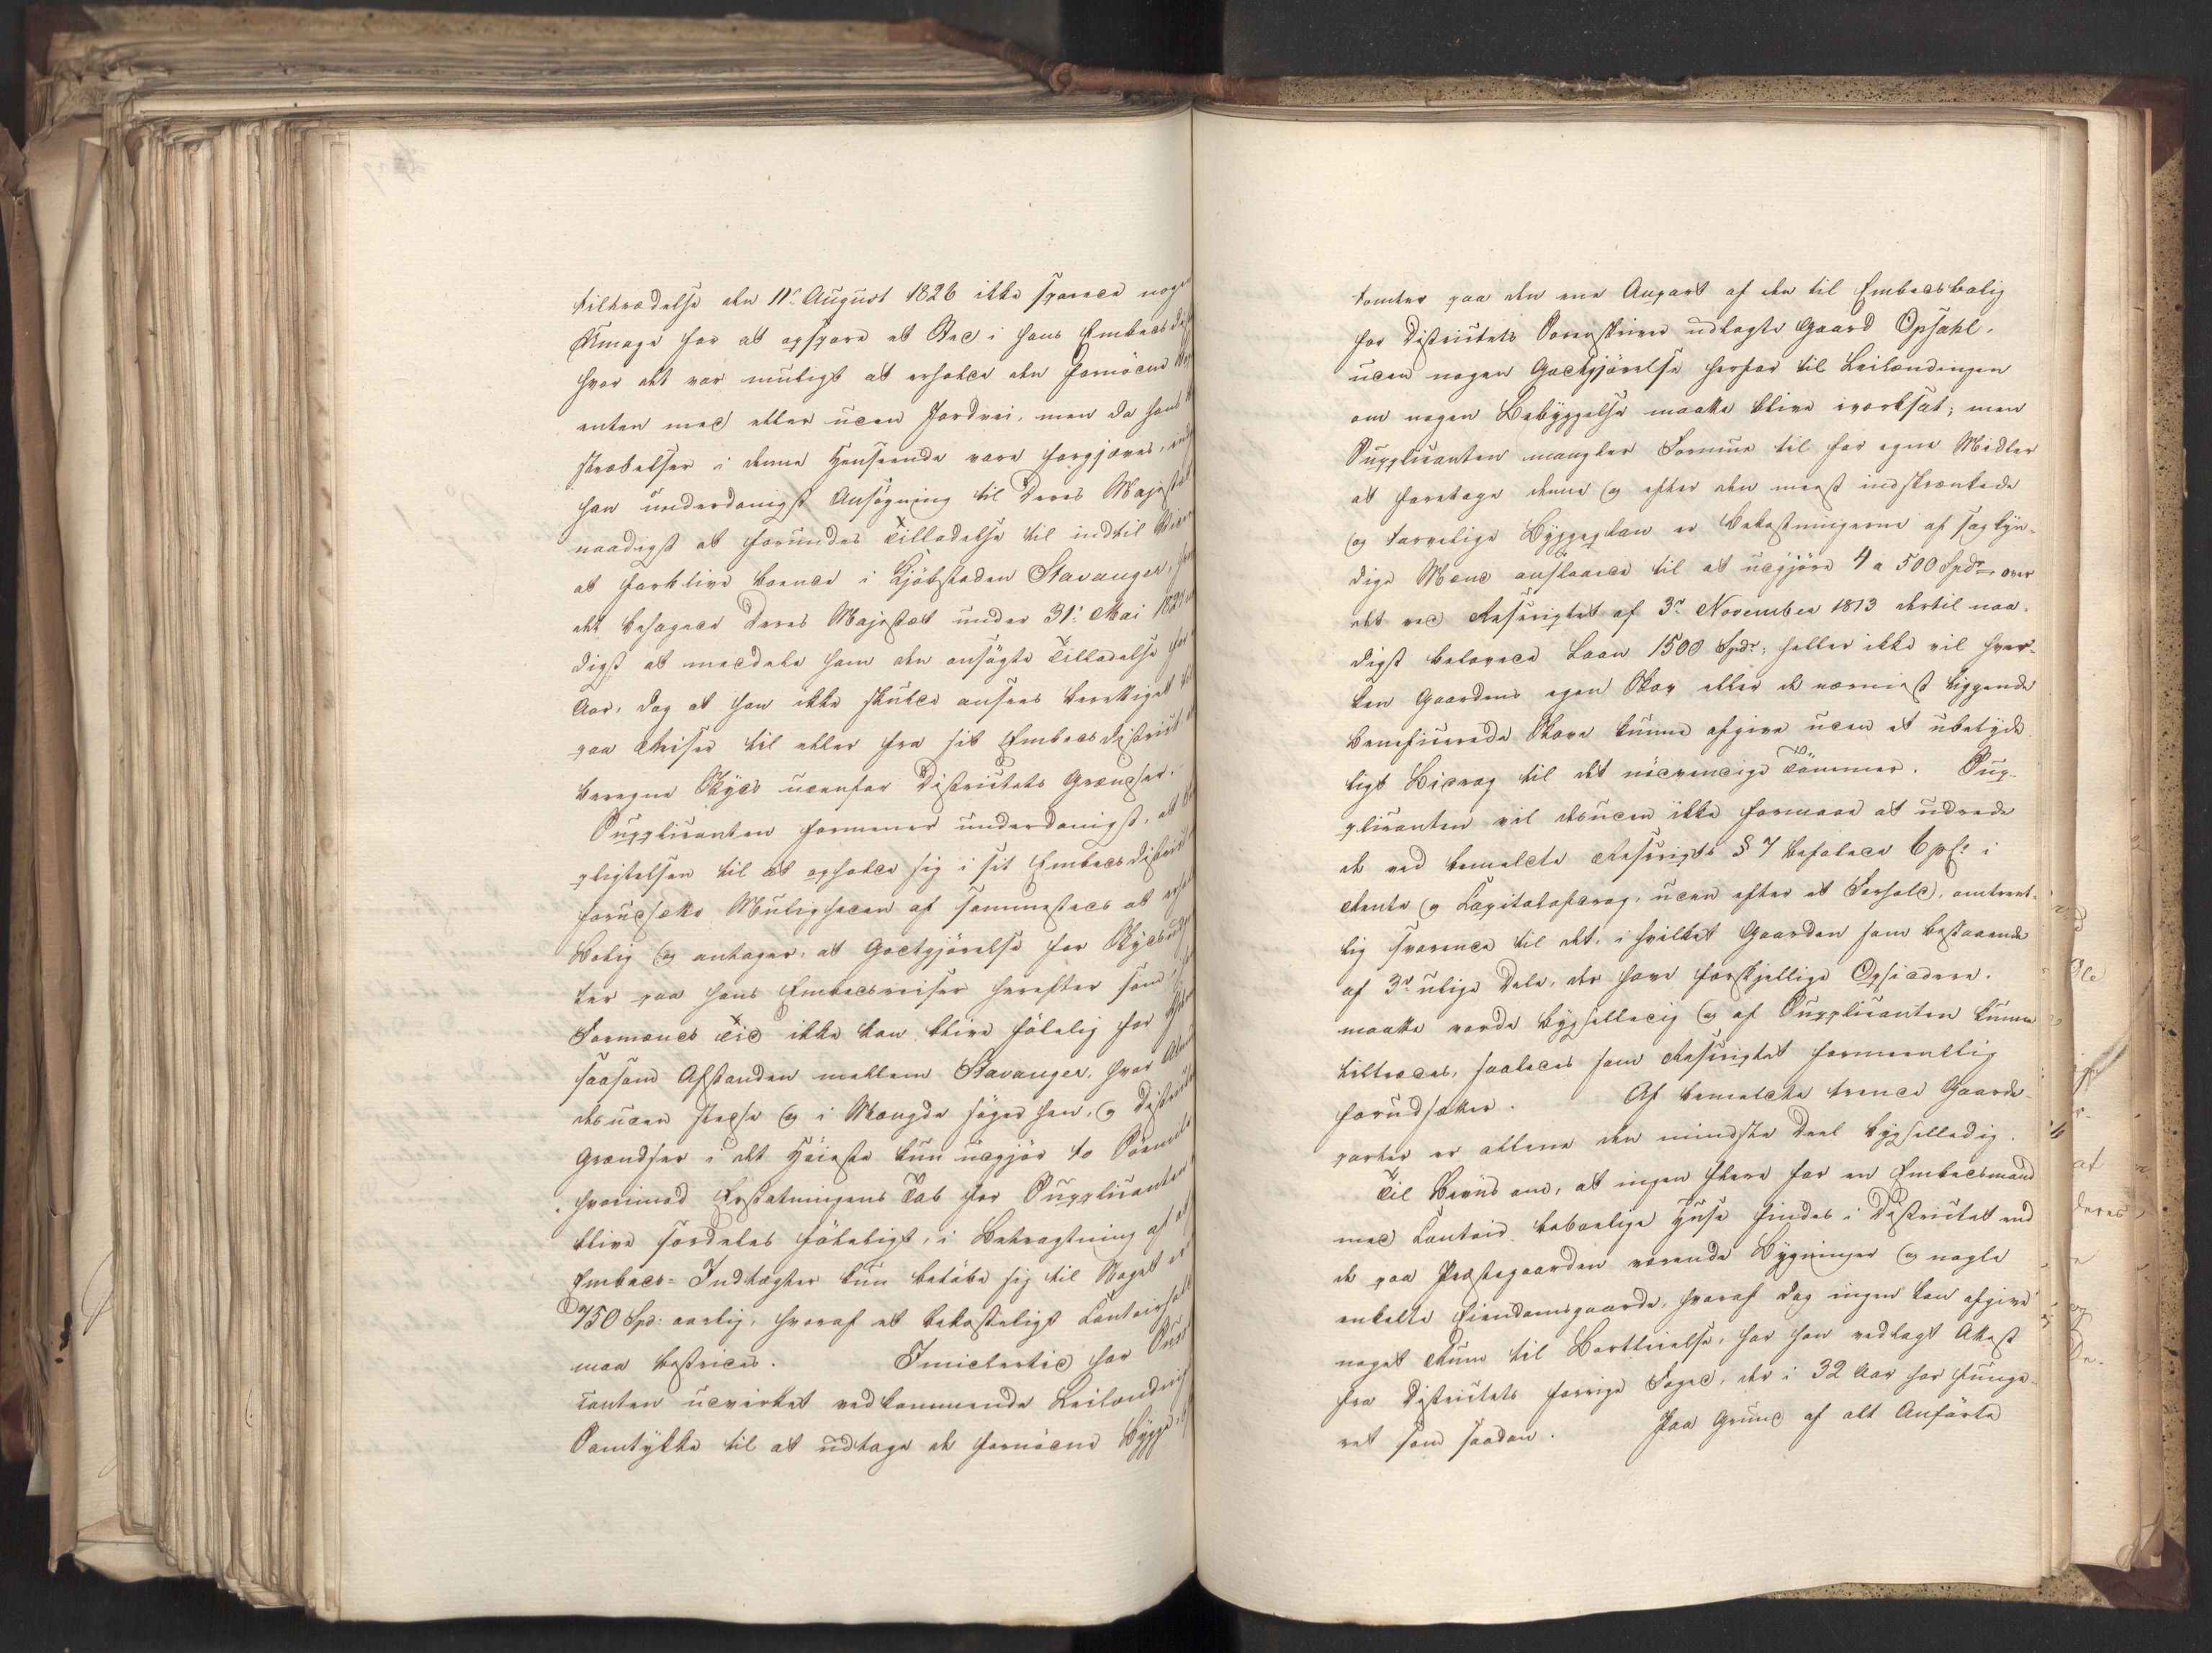 tiltrædelse den 11te August 1826 ikke sparede nogen
Umage for at opspore et Sted i hans Embedsdi
hvor det var muligt at erholde den fornödne
enten med eller uden Jordvei, men da hans
stræbelser i denne Henseende vare forgjæves,
han underdanigst Ansögning til Deres Majestæt
naadigst at forundes Tilladelse til indtil
at forblive boende i Kjöbstaden Stavanger,
det behagede Deres Majestæt under 31. Mai 182
digst at meddele ham den ansögte Tilladelse for
Aar, dog at han ikke skulde ansees berettiget til
paa Reiser til eller fra sit Embedsdistrict at
beregne Skyds udenfor Districtets Grændser.
Supplicanten formener underdanigst, at
pligtelsen til at opholde sig i sit Embedsdistrict
forudsætte Muligheden af sammesteds at erhol
Bolig og antager, at Godtgjörelse for Skydsud
ter paa hans Embedsreiser herefter som i
Formands Tid ikke kan blive fölelig for
saasom Afstanden mellem Stavanger, hvor
desuden stedse og i Mængde söges hen, og District
Grændser i det Höieste kun udgjör to Sömile
hvorimod Erstatningens Tab for Supplicanten
blive særdeles föleligt, i Betragtning af at
Embeds-Indtægter kun belöbe sig til Noget over
750 Spd: aarlig, hvoraf et bekosteligt Contoirhold
maa bestrides. Imidlertid har Supp
canten udvirket vedkommende Leilændings
Samtykke til at udtage de fornödne Bygge
tomter paa den ene Anpart af den til Embedsbolig
for Districtets Sorenskriver udlagte Gaard Opsahl,
uden nogen Godtgjörelse herfor til Leilændingen
om nogen Bebyggelse maatte blive iværksat; men
Supplicanten mangler Formue til for egne Midler
at foretage denne og efter den meest indskrænkede
og tarvelige Byggeplan er Bekostningerne af sagkyn-
dige Mænd anslaaede til at udgjöre 4 a 500 Spdr over
det ved Rescriptet af 3die November 1813 dertil naa-
digst belovede Laan 1500 Spdr; heller ikke vil hver-
ken Gaardens egen Skov eller de nærmest liggende
beneficerede Skove kunne afgive uden et ubetyde
ligt Bidrag til det nödvendige Tömmer. Sup-
plicanten vil desuden ikke formaae at udrede
de ved bemeldte Rescripts § 7 befalede 6 pCt. i
Rente og Capitalafdrag, uden efter et Forhold, omtrent-
lig svarende til det, i hvilket Gaarden som bestaaende
af 3de ulige Dele, der have forskjellige Opsiddere.
maatte vorde bygselledig og af Supplicanten kunne
tiltrædes, saaledes som Rescriptet formeentlig
forudsætter. Af bemeldte trende Gaarde-
parter er allene den mindste Deel bygselledig.
Til Beviis om, at ingen flere for en Embedsmand
med Contoir beboelige Huse findes i Districtet end
de paa Præstegaarden værende Bygninger og nogle
enkelte Eiendomsgaarde, hvoraf dog ingen kan afgive
noget Rum til Bortleielse, har han vedlagt Attest
fra Districtets forrige Foged, der i 32 Aar har funge-
ret som saadan. Paa Grund af alt Anförte